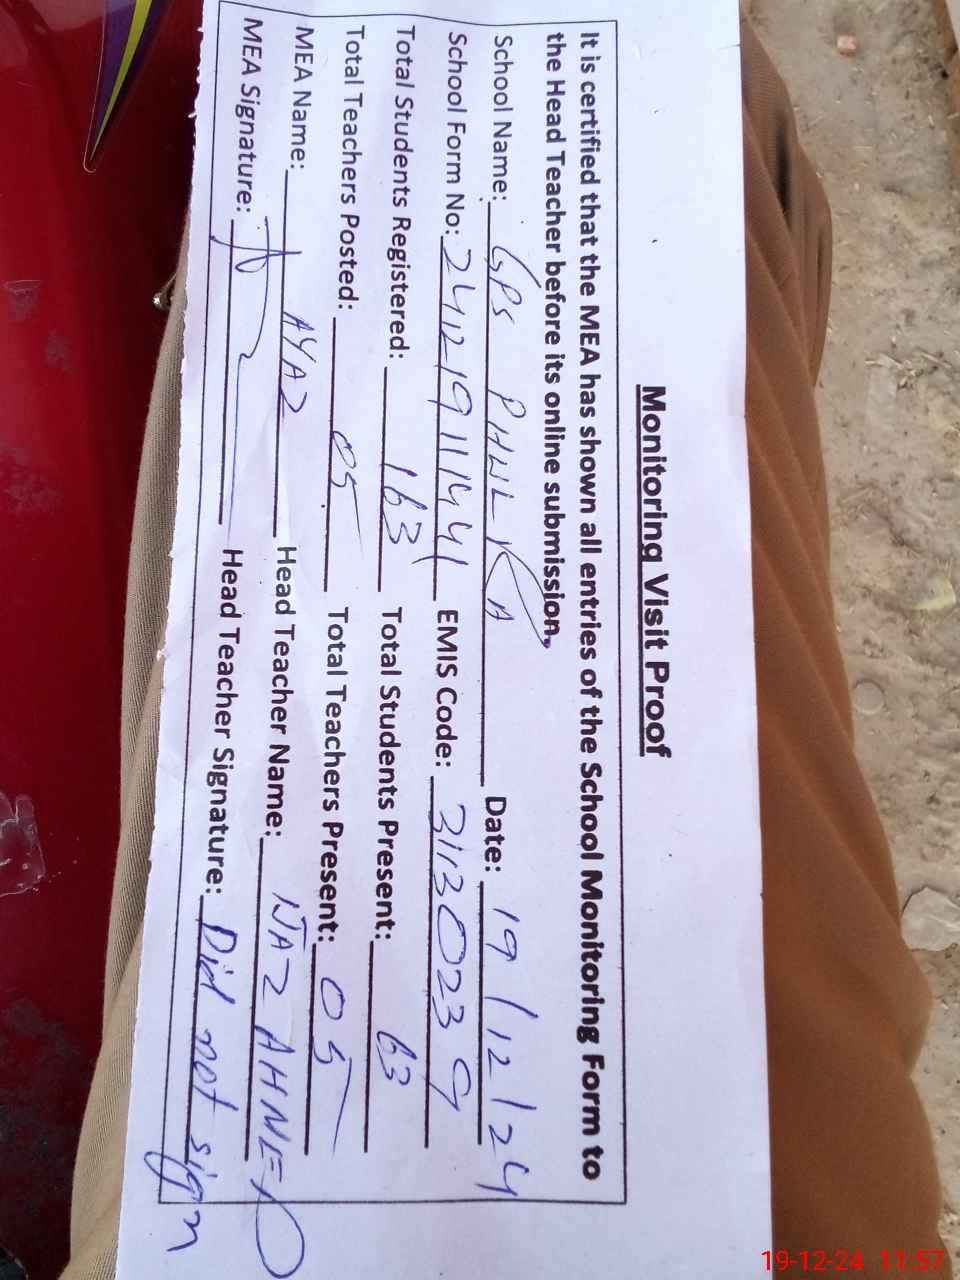 Monitoring Visit Proof
It is certified that the MEA has shown all entries of the School Monitoring Form to
the Head Teacher before its online submission.
School Name: GPS PHUL Date: 19/12/24
School Form No: 241219111441 EMIS Code: 31130239
Total Students Registered: 163 Total Students Present: 63
Total Teachers Posted: 05 Total Teachers Present: 05
MEA Name: AYAZ Head Teacher Name: NAZ AHMED
MEA Signature: Head Teacher Signature: Did not sign
19-12-24 11:57